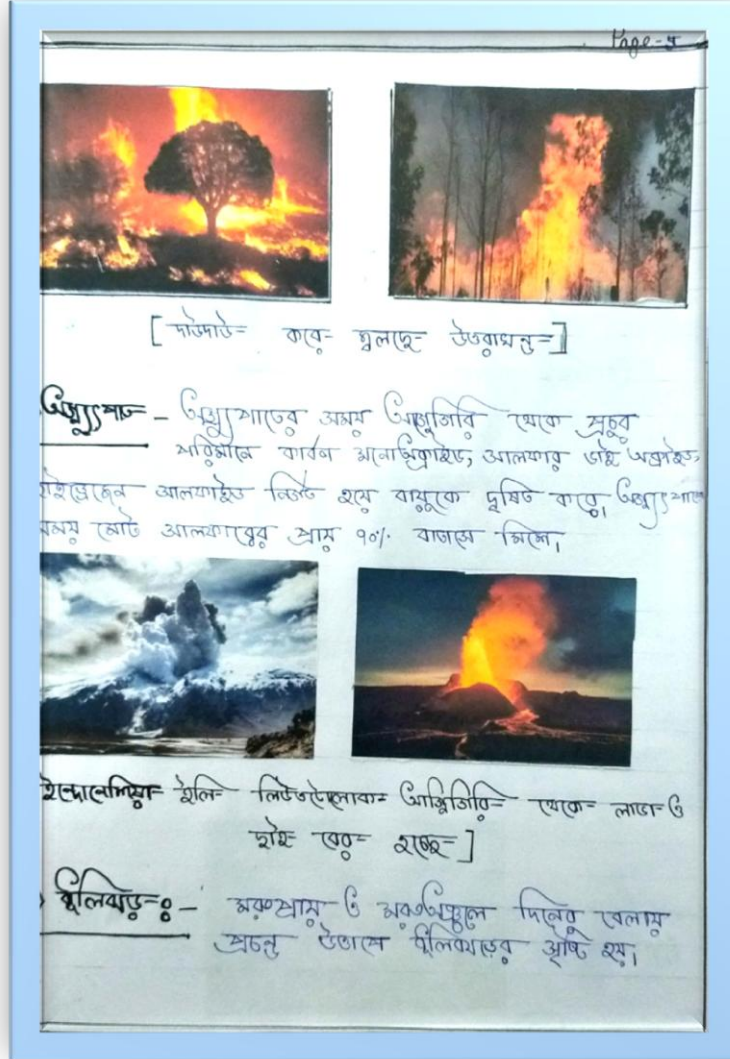 Page-5
[দাউদাউ করে জ্বলছে উত্তরাখন্ড]
অগ্ন্যুৎপাত - অগ্ন্যুৎপাতের সময় আগ্নেয়গিরি থেকে প্রচুর
পরিমানে কার্বন মনোঅক্সাইড, সালফার ডাই অক্সাইড,
হাইড্রোজেন সালফাইড নির্গত হয়ে বায়ুকে দূষিত করে।
সময় মোট সালফারের প্রায় ৭০% বাতাসে মিশে।
ইন্দোনেশিয়া আগ্নেয়গিরি থেকে লাভা ও
ছাই বের হচ্ছে]
ধূলিঝড় ঃ- মরুপ্রায় ও মরুঅঞ্চলে দিনের বেলায়
প্রচন্ড উত্তাপে ধূলিঝড়ের সৃষ্টি হয়।